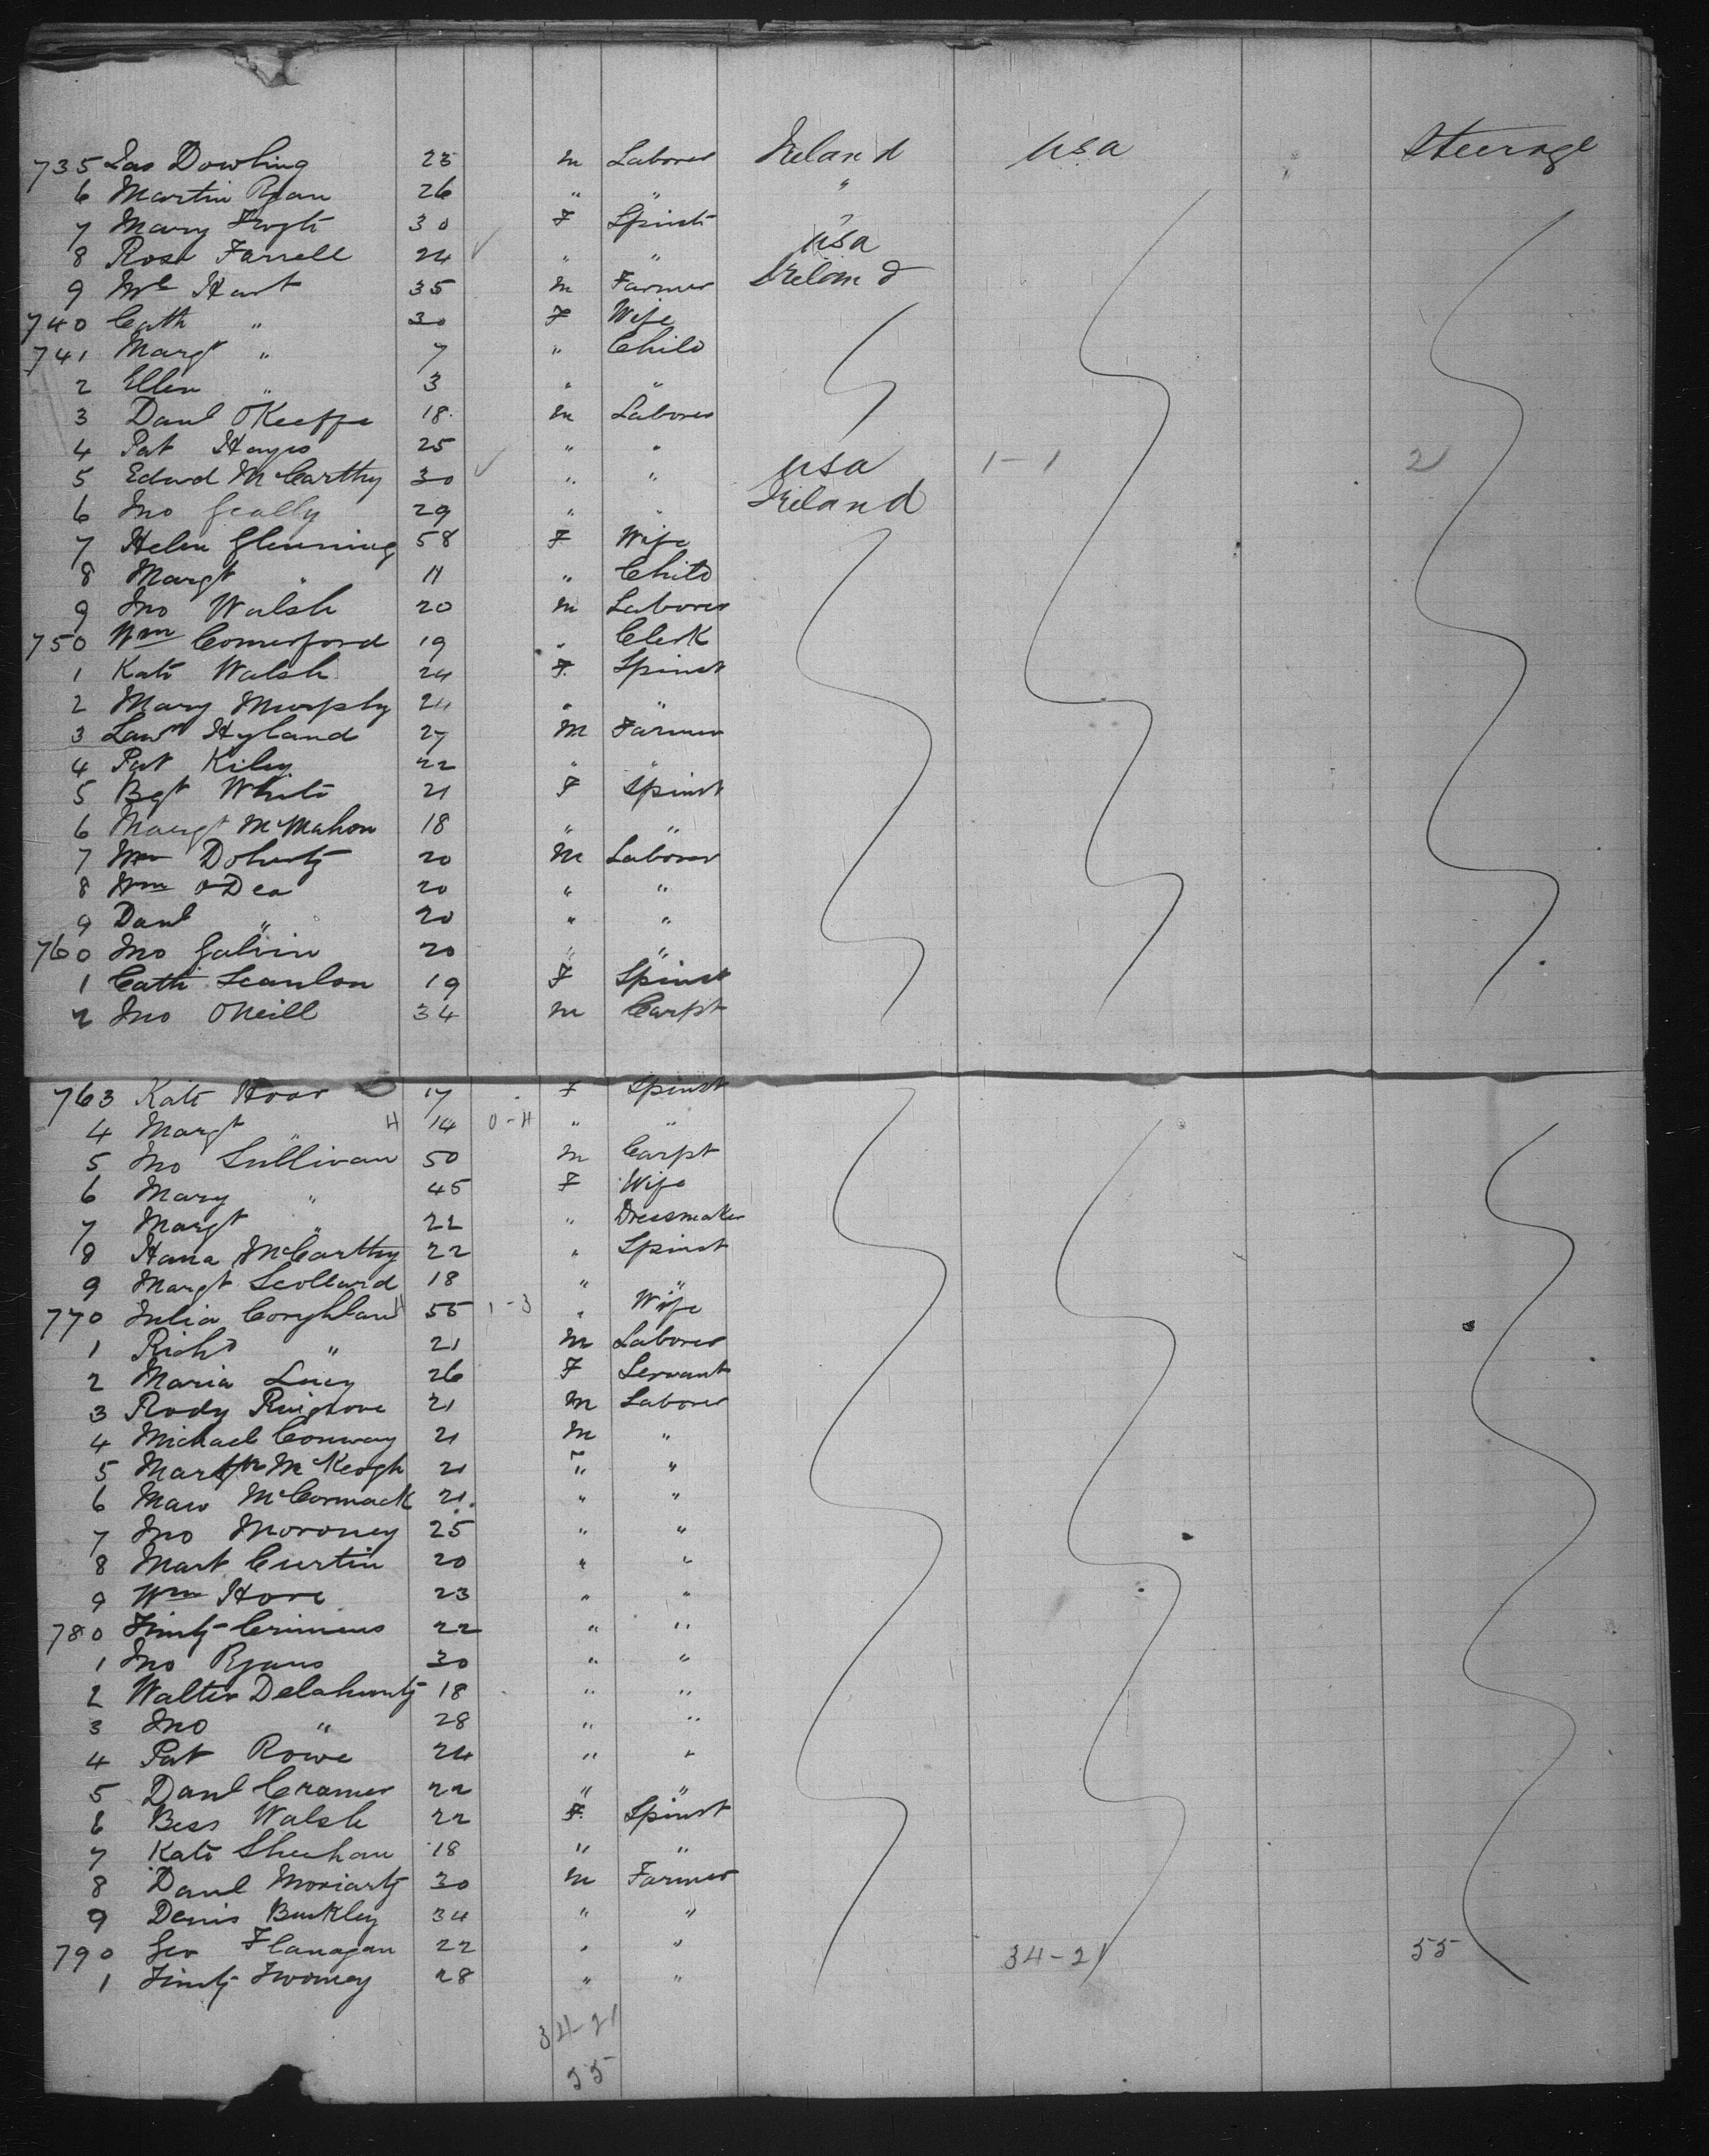 735 Jas Dowling 23 m Laborer Ireland USA Steerage
6 Martin Ryan 26 " " "
7 Mary 30 F Spinst "
8 Rose Farrell 24 ✓ " " USA
9 Ml Hart 35 m Farmer Ireland
740 Cath " 30 F Wife
741 Margt " 7 " Child
2 Ellen " 3 " "
3 Danl OKeeffe 18 m Laborer
4 Pat Hayes 25 " "
5 Edwd McCarthy 30 ✓ " " USA 1-1 2
6 Jno Geally 29 " " Ireland
7 Helen Glenning 58 F Wife
8 Margt " 11 " Child
9 Jno Walsh 20 m Laborer
750 Wm Comerford 19 " Clerk
1 Kate Walsh 24 F Spinst
2 Mary Murphy 24 " "
3 Law Hyland 27 M Farmer
4 Pat Kiley 22 " "
5 Bgt White 21 F Spinst
6 Margt McMahon 18 " "
7 Wm Doherty 20 M Laborer
8 Wm O'Dea 20 " "
9 Danl " 20 " "
760 Jno Galvin 20 " "
1 Cath Scanlon 19 F Spinst
2 Jno ONeill 34 m Carpt
763 Kate Hoar 17 F Spinst
4 Margt " H 14 0-H " "
5 Jno Sullivan 50 m Carpt
6 Mary " 45 F Wife
7 Margt " 22 " Dressmaker
8 Hana McCarthy 22 " Spinst
9 Margt Scollard 18 " "
770 Julia Coryhlan H 55 1-3 " Wife
1 Richd " 21 m Laborer
2 Maria Lucy 26 F Servant
3 Rody 21 m Laborer
4 Michael Conway 21 m "
5 McKeogh 21 " "
6 McCormack 21 " "
7 Jno Moroney 25 " "
8 Mart Curtin 20 " "
9 Wm Hore 23 " "
780 Timty Crimens 22 " "
1 Jno Ryans 30 " "
2 Walter Delahunty 18 " "
3 Jno " 28 " "
4 Pat Rowe 24 " "
5 Danl Cramer 22 " "
6 Bess Walsh 22 F Spinst
7 Kate Sheehan 18 " "
8 Danl Moriarty 30 m Farmer
9 Denis Buckley 34 " "
790 Geo Flanagan 22 " " 34-21 55
1 Timty Twomey 28 " "
34-21
55